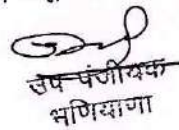 उप पंजीयक
भणियाणा